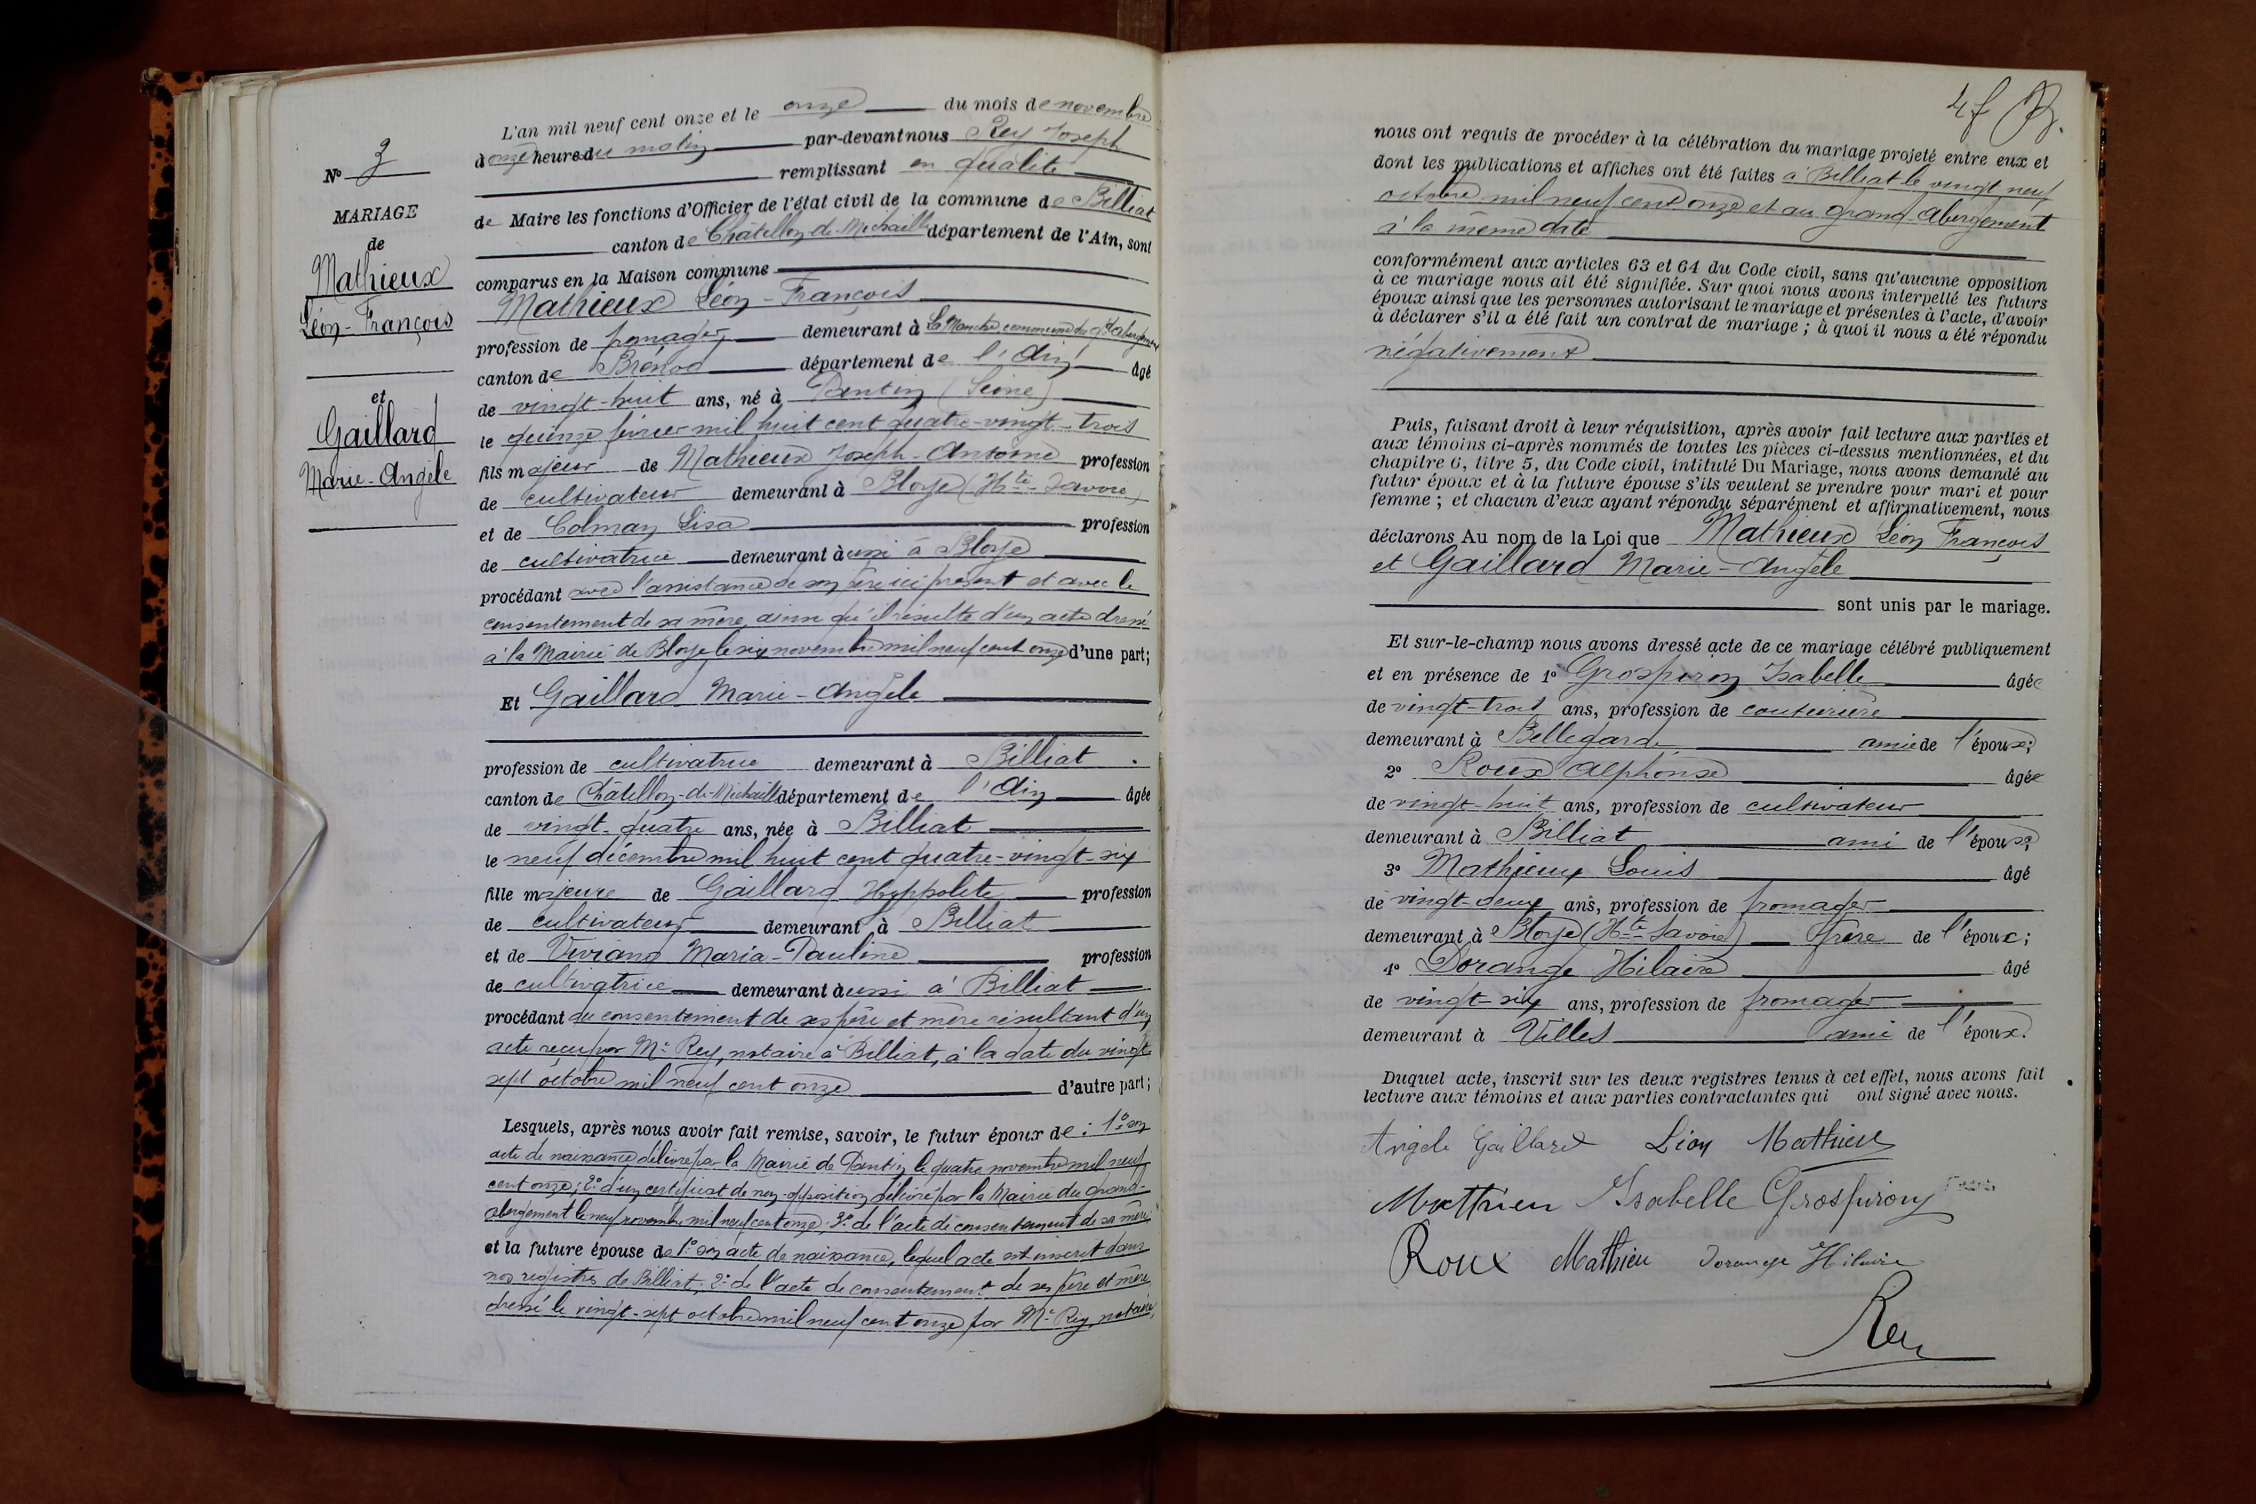 N° 3
MARIAGE
de
Mathieux
Léon-François
et
Gaillard
Marie-Angèle
L'an mil neuf cent onze et le onze du mois de novembre
à onze heure du matin par-devant nous Rey Joseph
remplissant en qualité
de Maire les fonctions d'Officier de l'état civil de la commune de Billiat
canton de Châtillon-de-Michaille département de l'Ain, sont
comparus en la Maison commune
Mathieux Léon-François
profession de fromager demeurant à La Manche commune du gd abergement
canton de Brénod département de l'Ain âgé
de vingt-huit ans, né à Pantin (Seine)
le quinze février mil huit cent quatre-vingt-trois
fils majeur de Mathieux Joseph-Antoine profession
de cultivateur demeurant à Bloye (Hte-Savoie)
et de Colman Lisa profession
de cultivatrice demeurant aussi à Bloye
procédant avec l'assistance de son père ici présent et avec le
consentement de sa mère, ainsi qu'il résulte d'un acte dressé
à la Mairie de Bloye le six novembre mil neuf cent onze d'une part;
Et Gaillard Marie-Angèle
profession de cultivatrice demeurant à Billiat
canton de Châtillon-de-Michaille département de l'Ain âgée
de vingt-quatre ans, née à Billiat
le neuf décembre mil huit cent quatre-vingt-six
fille majeure de Gaillard Hyppolite profession
de cultivateur demeurant à Billiat
et de Viviand Maria-Pauline profession
de cultivatrice demeurant aussi à Billiat
procédant du consentement de ses père et mère résultant d'un
acte reçu par Me Rey, notaire à Billiat, à la date du vingt
sept octobre mil neuf cent onze d'autre part;
Lesquels, après nous avoir fait remise, savoir, le futur époux de : 1° son
acte de naissance délivré par la Mairie de Pantin le quatre novembre mil neuf
cent onze; 2° d'un certificat de non-opposition délivré par la Mairie du grand-
abergement le neuf novembre mil neuf cent onze; 3° de l'acte de consentement de sa mère;
et la future épouse de 1° son acte de naissance, lequel acte est inscrit dans
nos registres de Billiat; 2° de l'acte de consentement de ses père et mère
dressé le vingt-sept octobre mil neuf cent onze par Me Rey, notaire,
nous ont requis de procéder à la célébration du mariage projeté entre eux et
dont les publications et affiches ont été faites à Billiat le vingt neuf
octobre mil neuf cent onze et au grand-abergement
à la même date
conformément aux articles 63 et 64 du Code civil, sans qu'aucune opposition
à ce mariage nous ait été signifiée. Sur quoi nous avons interpellé les futurs
époux ainsi que les personnes autorisant le mariage et présentes à l'acte, d'avoir
à déclarer s'il a été fait un contrat de mariage ; à quoi il nous a été répondu
négativement
Puis, faisant droit à leur réquisition, après avoir fait lecture aux parties et
aux témoins ci-après nommés de toutes les pièces ci-dessus mentionnées, et du
chapitre 6, titre 5, du Code civil, intitulé Du Mariage, nous avons demandé au
futur époux et à la future épouse s'ils veulent se prendre pour mari et pour
femme ; et chacun d'eux ayant répondu séparément et affirmativement, nous
déclarons Au nom de la Loi que Mathieux Léon François
et Gaillard Marie-Angèle
sont unis par le mariage.
Et sur-le-champ nous avons dressé acte de ce mariage célébré publiquement
et en présence de 1° Grospiron Isabelle âgée
de vingt-trois ans, profession de couturière
demeurant à Bellegarde amie de l'époux;
2° Roux Alphonse âgé
de vingt-huit ans, profession de cultivateur
demeurant à Billiat ami de l'époux;
3° Mathieux Louis âgé
de vingt-deux ans, profession de fromager
demeurant à Bloye (Hte-Savoie) frère de l'époux;
4° Dorange Hilaire âgé
de vingt-six ans, profession de fromager
demeurant à Villes ami de l'époux.
Duquel acte, inscrit sur les deux registres tenus à cet effet, nous avons fait
lecture aux témoins et aux parties contractantes qui ont signé avec nous.
Angèle Gaillard Léon Mathieu
Matthieu Isabelle Grospiron
Roux Mathieu Dorange Hilaire
Rey